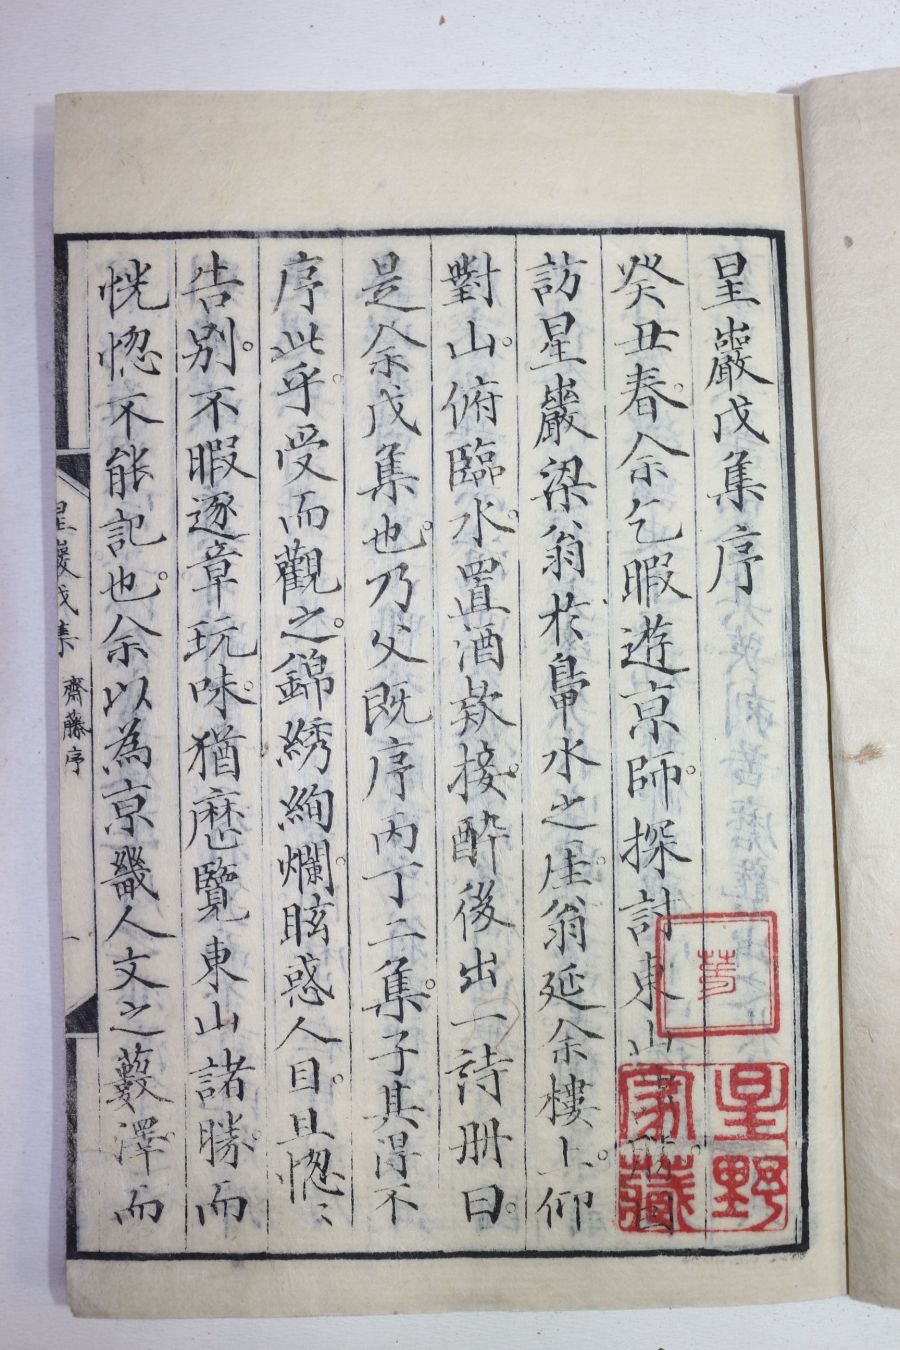 星巖戊集序
癸丑春。余乞暇遊京師。探討東山
訪星巖梁翁於鼻水之崖。翁延余樓上。仰
對山。俯臨水。置酒欵接。酔後出一詩册曰。
是余戊集也。乃父既序丙丁二集。子其得不
序此乎。受而觀之。錦綉絢爛。眩惑人目。且惚〻
告别。不暇逐章玩味。猶歴覽東山諸勝。而
恍惚不能記也。余以為京畿人文之藪澤。而
星巖戊集
齋藤序
一
星野
家藏